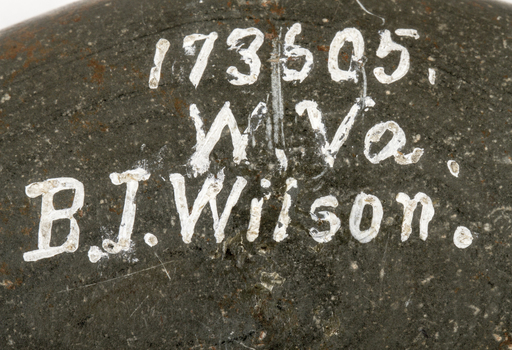 173605.
W. Va.
B.J. Wilson.